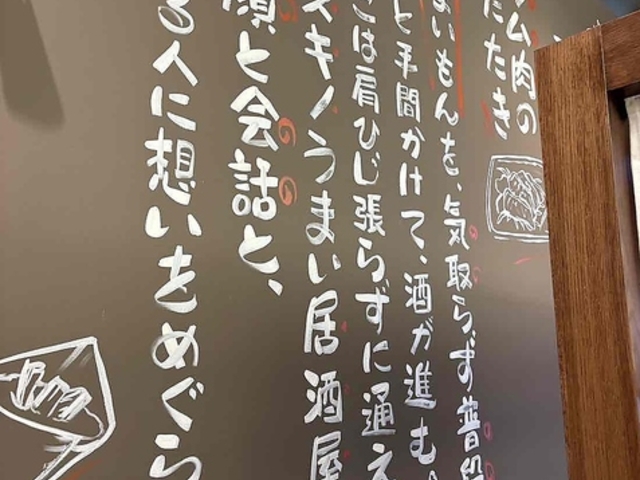 ム肉の
たたき
いもんを、気取らず普段
と手間かけて、酒が進む。
こは肩ひじ張らずに通え
スキノうまい居酒屋
顔と会話と、
る人に想いをめぐら